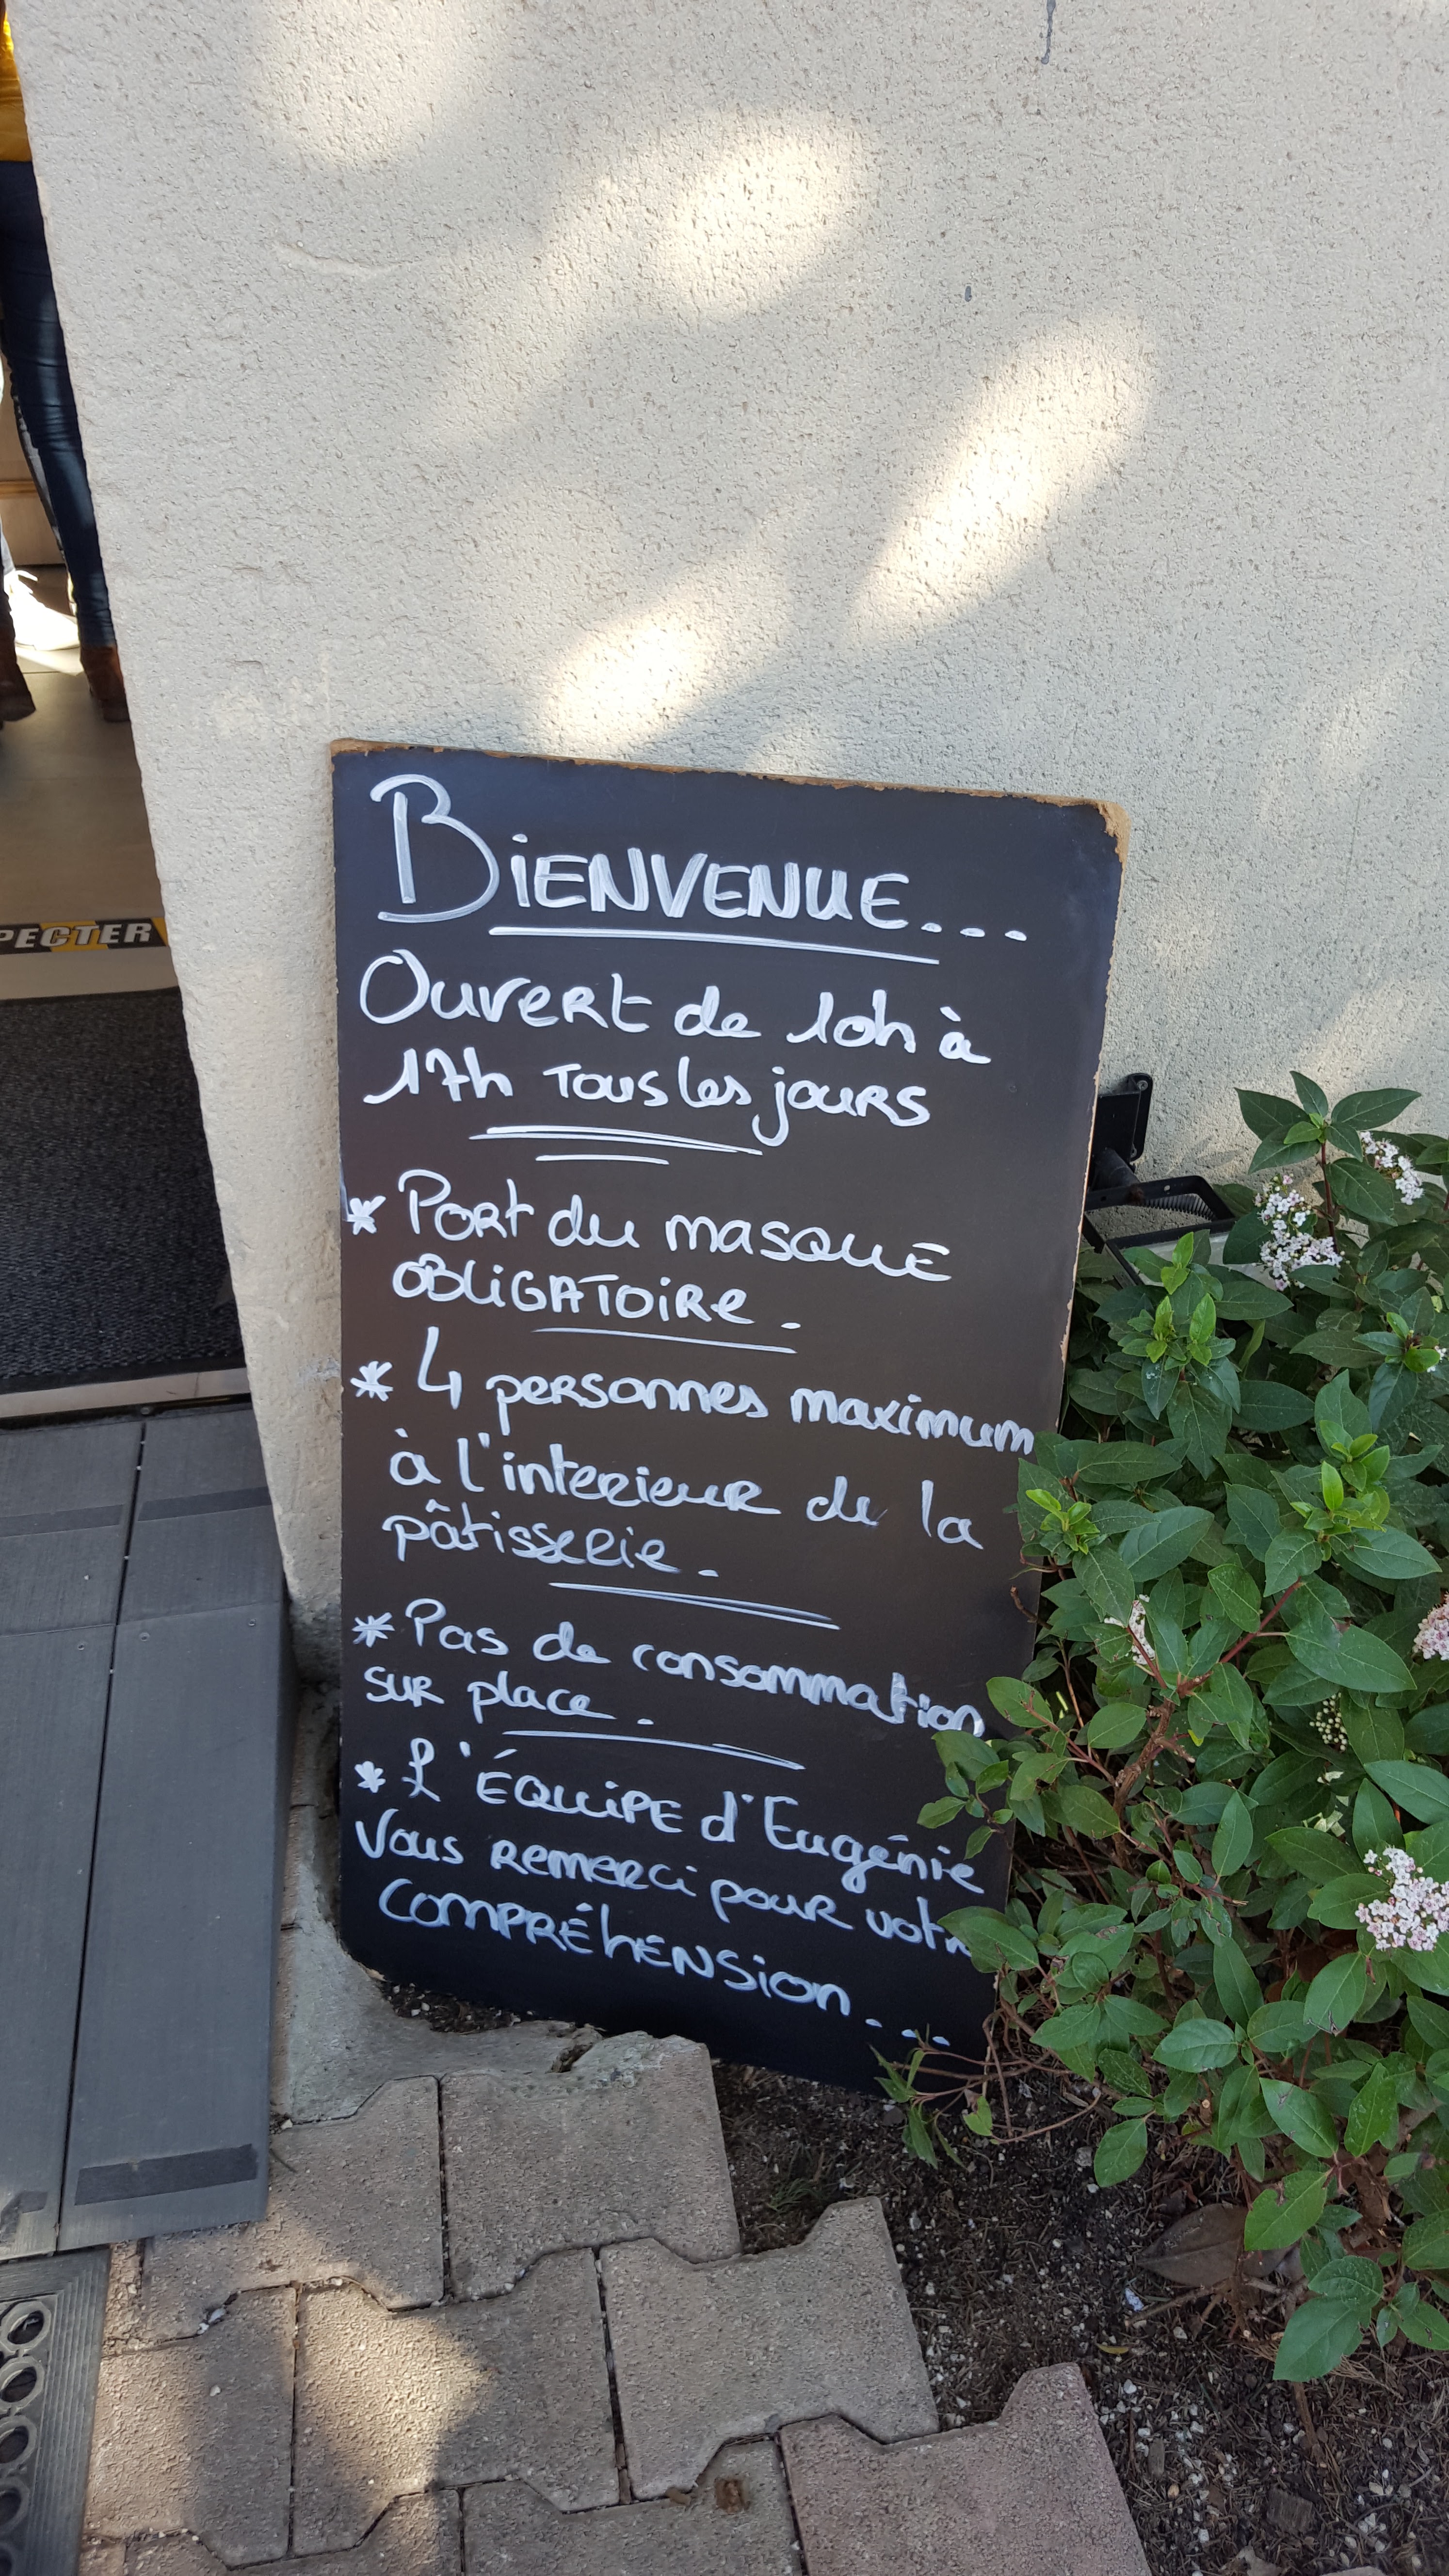 BiENVENUE...
Ouvert de 10h à
17h Tous les jours
* Port du masque
OBLiGATOiRe.
* 4 personnes maximum
à l'interieur de la
pâtisserie.
* Pas de consommation
sur place.
* L'ÉQUiPE d'Eugénie
Vous remerci pour votre
COMPRÉhENSion...
PECTER